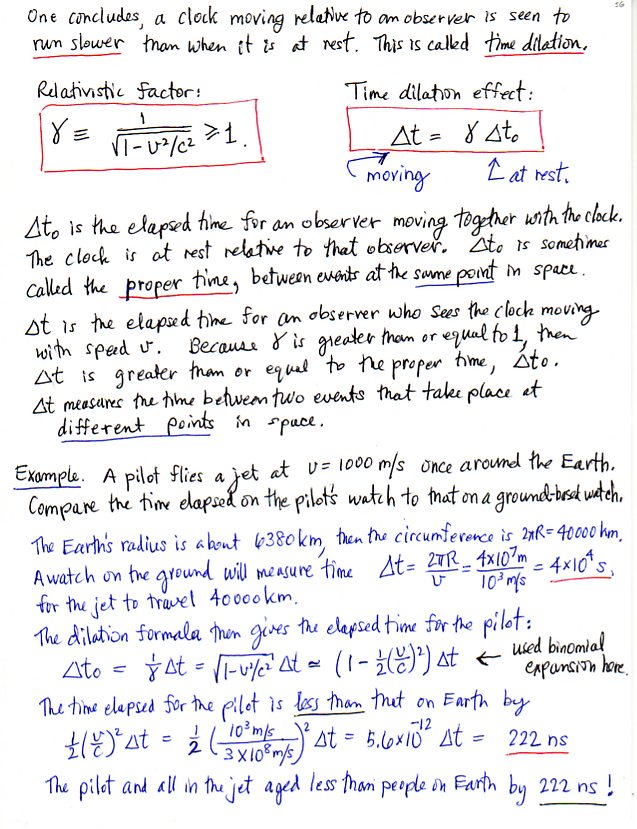 16
One concludes, a clock moving relative to an observer is seen to
run slower than when it is at rest. This is called time dilation.
Relativistic factor:
γ ≡ 1/√(1 - v²/c²) ≥ 1.
Time dilation effect:
Δt = γ Δt₀
moving
at rest.
Δt₀ is the elapsed time for an observer moving together with the clock.
The clock is at rest relative to that observer. Δt₀ is sometimes
called the proper time, between events at the same point in space.
Δt is the elapsed time for an observer who sees the clock moving
with speed v. Because γ is greater than or equal to 1, then
Δt is greater than or equal to the proper time, Δt₀.
Δt measures the time between two events that take place at
different points in space.
Example. A pilot flies a jet at v = 1000 m/s once around the Earth.
Compare the time elapsed on the pilot's watch to that on a ground-based watch.
The Earth's radius is about 6380 km, then the circumference is 2πR = 40000 km.
A watch on the ground will measure time Δt = 2πR/v = 4×10⁷ m/10³ m/s = 4×10⁴ s,
for the jet to travel 40000 km.
The dilation formula then gives the elapsed time for the pilot:
Δt₀ = 1/γ Δt = √(1-v²/c²) Δt ≃ (1 - ½(v/c)²) Δt ← used binomial
expansion here.
The time elapsed for the pilot is less than that on Earth by
½(v/c)² Δt = ½ (10³ m/s / 3×10⁸ m/s)² Δt = 5.6×10⁻¹² Δt = 222 ns
The pilot and all in the jet aged less than people on Earth by 222 ns !